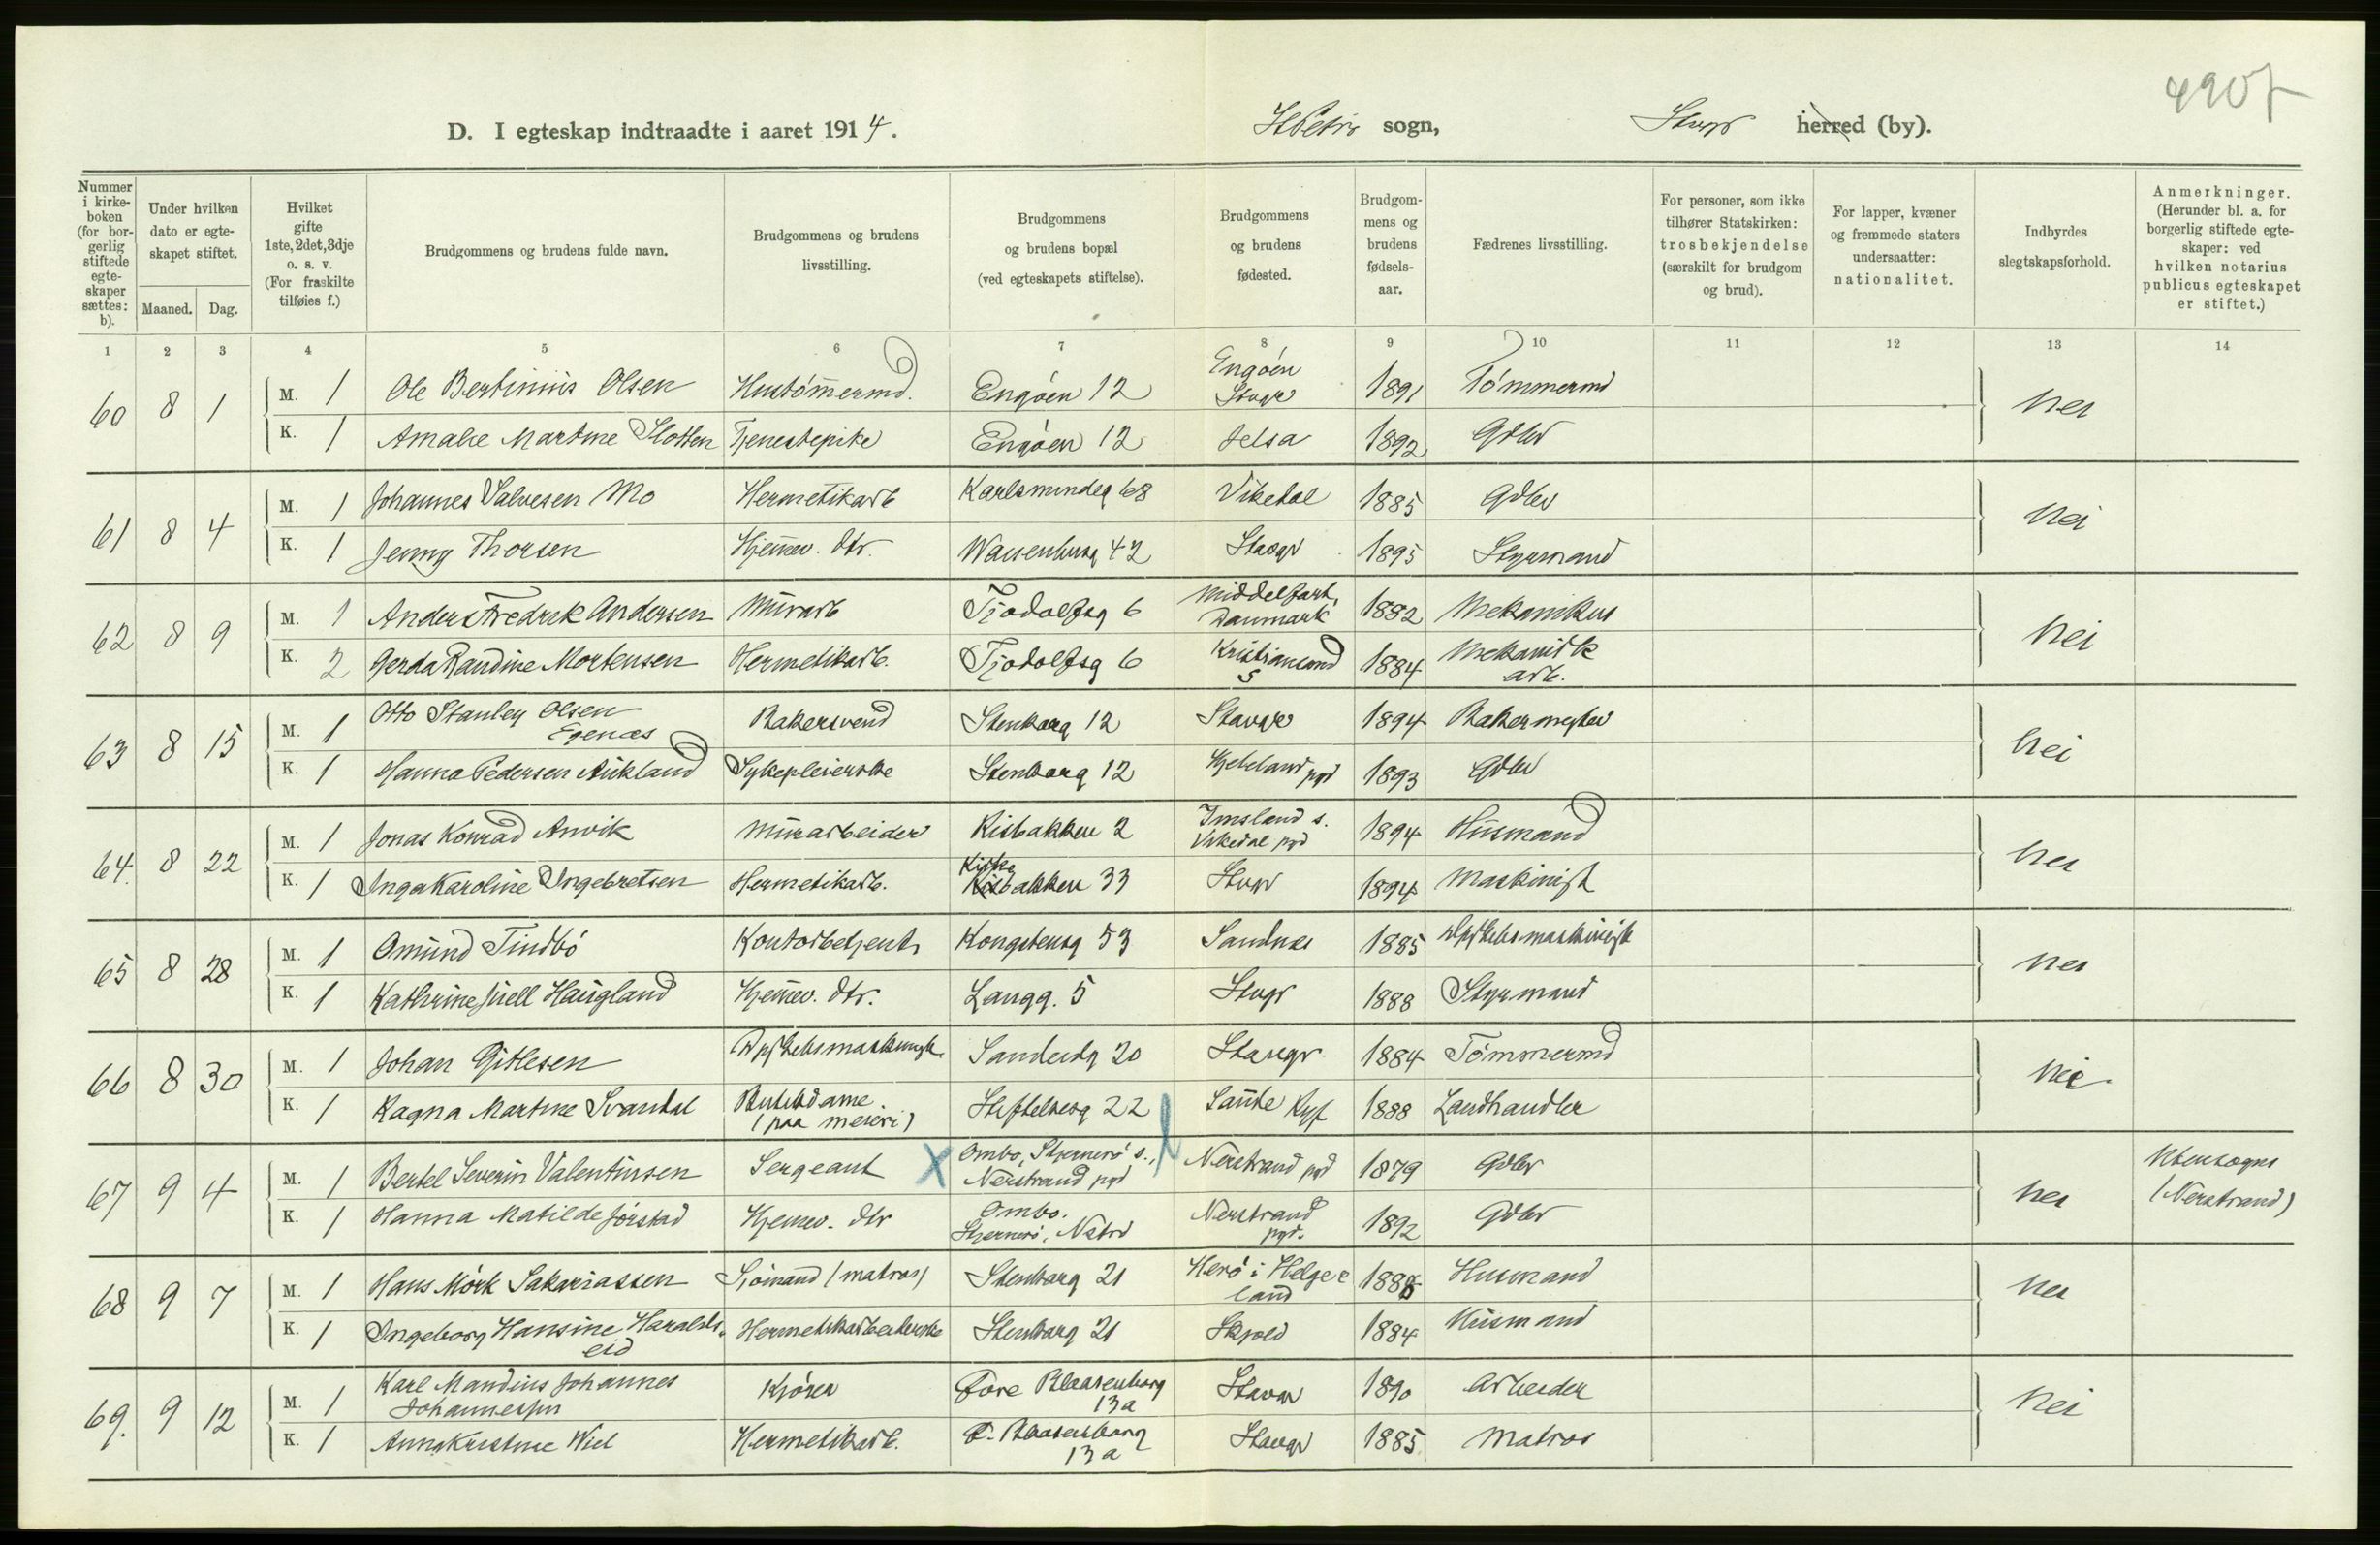 490
D. I egteskap indtraadte i aaret 1914. St Petri sogn, Stvgr herred (by).
Nummer i kirkeboken (for borgerlig stiftede egteskaper sættes: b).
Under hvilken dato er egteskapet stiftet.
Maaned. Dag.
Hvilket gifte 1ste, 2det, 3dje o. s. v. (For fraskilte tilføies f.)
Brudgommens og brudens fulde navn.
Brudgommens og brudens livsstilling.
Brudgommens og brudens bopæl (ved egteskapets stiftelse).
Brudgommens og brudens fødested.
Brudgommens og brudens fødselsaar.
Fædrenes livsstilling.
For personer, som ikke tilhører Statskirken: trosbekjendelse (særskilt for brudgom og brud).
For lapper, kvæner og fremmede staters undersaatter: nationalitet.
Indbyrdes slegtskapsforhold.
Anmerkninger. (Herunder bl. a. for borgerlig stiftede egteskaper: ved hvilken notarius publicus egteskapet er stiftet.)
1 2 3 4 5 6 7 8 9 10 11 12 13 14
60 8 1 M. 1 Ole Bertinius Olsen Hustömmermd. Engöen 12 Engöen Stavgr 1891 Tömmermd nei
K. 1 Amalie Martine Slotten Tjenestepike Engöen 12 Jelsa 1892 Gdbr
61 8 4 M. 1 Johannes Salvesen Mo Hermetikarb Karlsmindeg 68 Vikedal 1885 Gdbr nei
K. 1 Jenny Thorsen Hjemmev. dtr. Waisenhusg 42 Stavgr 1895 Styrmand
62 8 9 M. 1 Anders Fredrik Andersen Murarb Tjodolfsg 6 Middelfart, Danmark 1882 Mekanikus nei
K. 2 Gerda Randine Mortensen Hermetikarb. Tjodolfsg 6 Kristiansand S 1884 Mekanisk arb.
63 8 15 M. 1 Otto Stanley Olsen Egenæs Bakersvend Stenkarg 12 Stavgr 1894 Bakermester nei
K. 1 Hanna Pedersen Aukland Sykepleierske Stenkarg 12 Hjelmeland pgd 1893 Gdbr
64. 8 22 M. 1 Jonas Konrad Anvik Murarbeider Risbakken 2 Imsland s. Vikedal pgd 1894 Husmand nei
K. 1 Inga Karoline Ingebretsen Hermetikarb. Kirkebakken 33 Stvgr 1894 Maskinist
65 8 28 M. 1 Omund Tindbö Kontorbetjent Kongstensg 53 Sandnes 1885 Dpskibsmaskinist nei
K. 1 Kathrine Juell Haugland Hjemmev. dtr. Langg. 5 Stvgr 1888 Styrmand
66 8 30 M. 1 Johan Gitlesen Dpskibsmaskinist. Sandeidg 20 Stavgr. 1884 Tömmermd nei.
K. 1 Ragna Martine Svandal Butikdame (paa meieri) Stiftelsesg 22 Saude Ryf 1888 Landhandler
67 9 4 M. 1 Bertel Severin Valentinsen Sergeant X Ombo, Stjernerö s., Nerstrand pgd Nerstrand pgd 1879 Gdbr nei Utensogns (Nerstrand)
K. 1 Hanna Matilde Jörstad Hjemmev. dtr Ombo. Stjernerö, Nstrd Nerstrand pgd. 1892 Gdbr
68 9 7 M. 1 Hans Mörk Sakariassen Sjömand (matros) Stenkarg 21 Herö i Helgeland 1885 Husmand nei
K. 1 Ingeborg Hansine Haraldseid Hermetikarbeiderske Stenkarg 21 Skjold 1884 Husmand
69. 9 12 M. 1 Karl Mandius Johannes Johannessen Kjörer Övre Blaasenborg 13a Stavgr 1890 Arbeider nei
K. 1 Anna Kristine Wiel Hermetikarb. Ö. Blaasenborg 13a Stavgr 1885 Matros